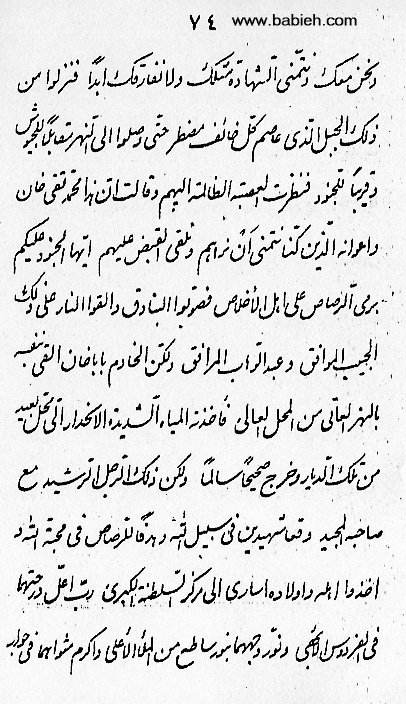 ٧٤ www.babieh.com
ونحن معك ونتمنی الشهادة مثلک ولانفارقک ابداً فنزلوا من
ذلک الجبل الذی عاصم کل خائف مضطر حتی وصلوا الی النهر مقابلاً للجیوش
وقریباً للجنود فنظرت العصبة الظالمة الیهم وقالت ان هذا محمد تقی خان
واعوانه الذین کنا نتمنی ان نراهم ونلقی القبض علیهم ایها الجنود علیکم
برمی الرصاص علی اهل الأخلاص فصوبوا البنادق والقوا النار علی ذلک
الحبیب الموافق وعبد الوهاب المرافق ولکن الخادم باباخان القی نفسه
بالنهر العاتی من المحل العالی فأخذته المیاه الشدیدة الانحدار الی محل بعید
من تلک الدیار وخرج صحیحاً سالماً ولکن ذلک الرجل الرشید مع
صاحبه المجید وقعا شهیدین فی سبیل الله وهدفاً للرصاص فی محبة الله و
اخذوا اهله واولاده اساری الی مرکز السلطنة الکبری رب اعل درجتهما
فی الفردوس الابهی ونور وجههما بنور ساطع من الملأ الأعلی واکرم مثواهما فی جوار